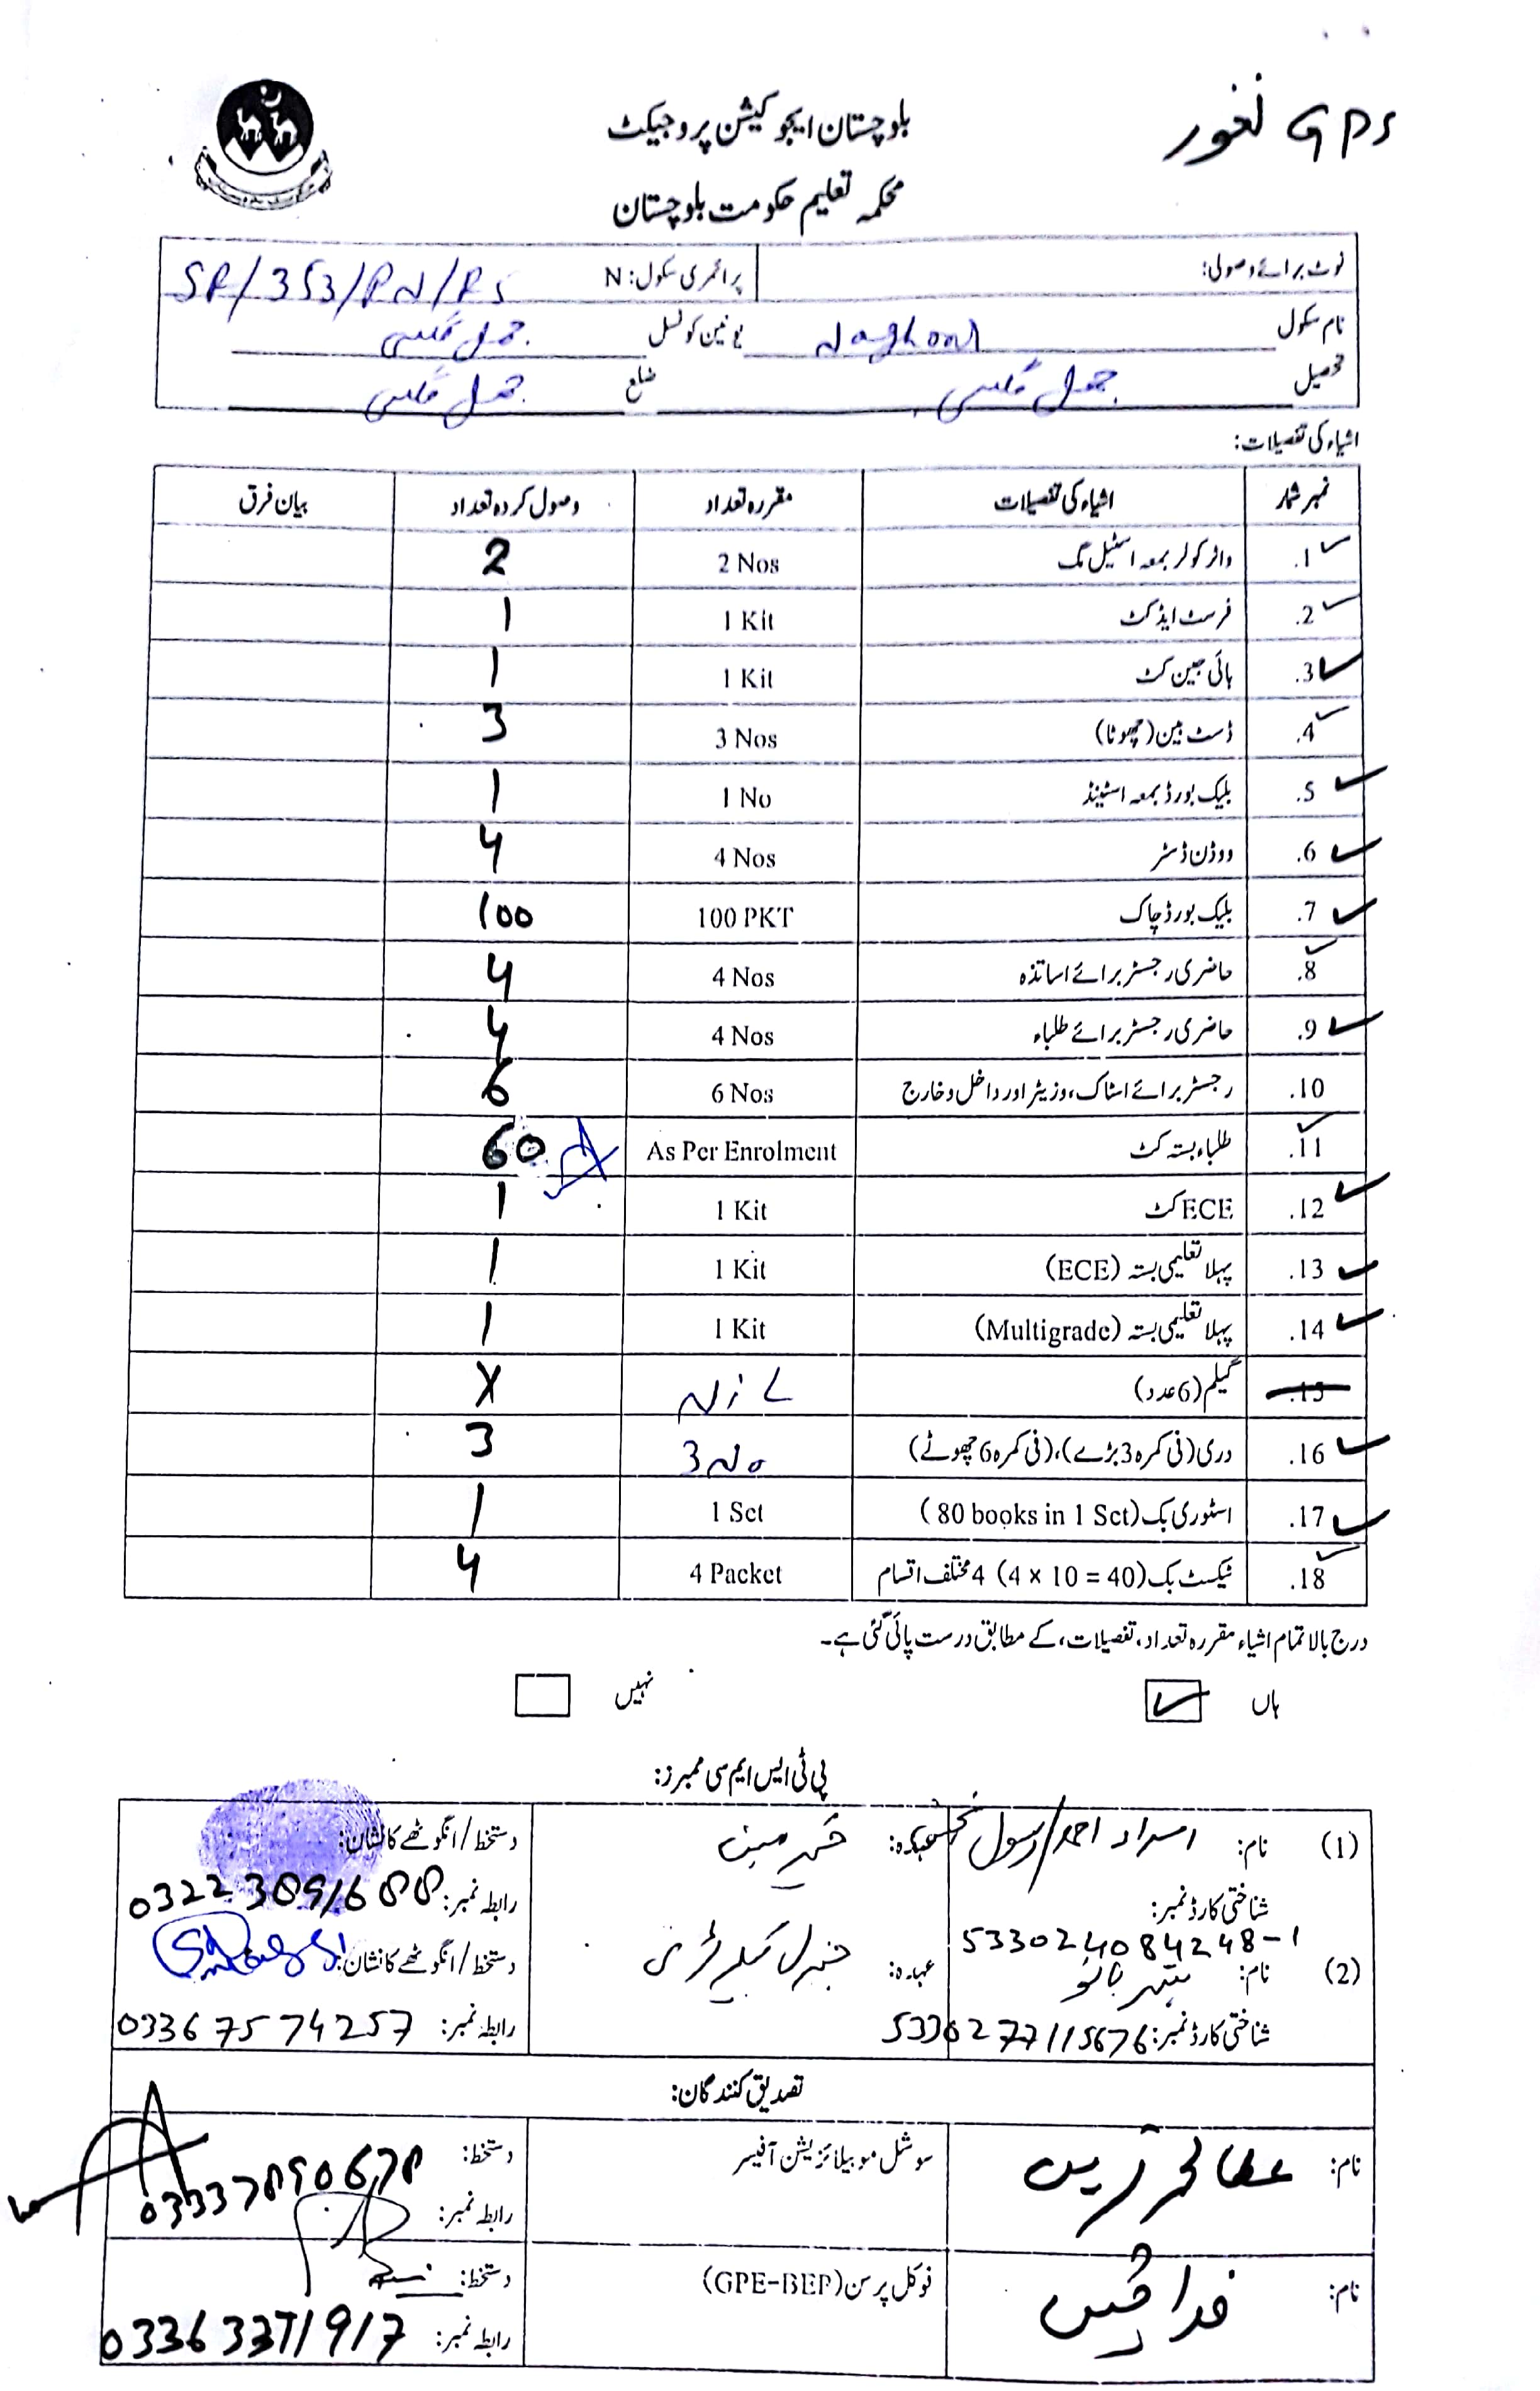 GPS نغور
بلوچستان ایجوکیشن پروجیکٹ
محکمہ تعلیم حکومت بلوچستان
نوٹ برائے وصولی: پرائمری سکول: N SP/353/PN/PS
نام سکول Naghour یونین کونسل جھل مگسی
تحصیل جھل مگسی ضلع جھل مگسی
اشیاء کی تفصیلات:
نمبر شمار اشیاء کی تفصیلات مقررہ تعداد وصول کردہ تعداد بیان فرق
1. واٹر کولر بمعہ اسٹیل مگ 2 Nos 2
2. فرسٹ ایڈ کٹ 1 Kit 1
3. ہائی جین کٹ 1 Kit 1
4. ڈسٹ بین (چھوٹا) 3 Nos 3
5. بلیک بورڈ بمعہ اسٹینڈ 1 No 1
6. ووڈن ڈسٹر 4 Nos 4
7. بلیک بورڈ چاک 100 PKT 100
8. حاضری رجسٹر برائے اساتذہ 4 Nos 4
9. حاضری رجسٹر برائے طلباء 4 Nos 4
10. رجسٹر برائے اسٹاک، وزیٹر اور داخل و خارج 6 Nos 6
11. طلباء بستہ کٹ As Per Enrolment 60
12. ECE کٹ 1 Kit 1
13. پہلا تعلیمی بستہ (ECE) 1 Kit 1
14. پہلا تعلیمی بستہ (Multigrade) 1 Kit 1
15. گیلم (6 عدد) NiL X
16. دری (فی کمرہ 3 بڑے)، (فی کمرہ 6 چھوٹے) 3 No 3
17. اسٹوری بک (80 books in 1 Set) 1 Set 1
18. ٹیکسٹ بک (4 x 10 = 40) 4 مختلف اقسام 4 Packet 4
درج بالا تمام اشیاء مقررہ تعداد، تفصیلات، کے مطابق درست پائی گئی ہے۔
ہاں نہیں
پی ٹی ایس ایم سی ممبرز:
(1) نام: اسرار احمد/رسول بخش عہدہ: چیرمین دستخط/انگوٹھے کا نشان:
شناختی کارڈ نمبر: 533024084248-1 رابطہ نمبر: 03223891688
(2) نام: شہر بانو عہدہ: جنرل سیکریٹری دستخط/انگوٹھے کا نشان:
شناختی کارڈ نمبر: 5330277115676 رابطہ نمبر: 03367574257
تصدیق کنندگان:
نام: عطا سوشل موبیلائزیشن آفیسر دستخط:
رابطہ نمبر: 03337890678
نام: فدا حسین فوکل پرسن (GPE-BEP) دستخط:
رابطہ نمبر: 03363371917